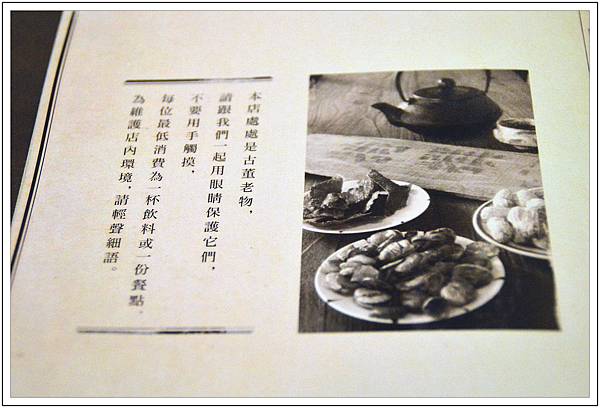 本店處處是古董老物，
請跟我們一起用眼睛保護它們，
不要用手觸摸，
每位最低消費為一杯飲料或一份餐點，
為維護店內環境，請輕聲細語。